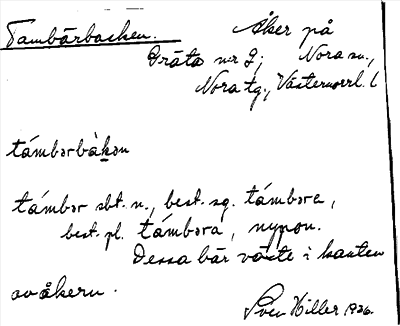 Tambärbacken. Åker på
Gräta nr 2; Nora sn.,
Nora tg., Västernorrl. l
támbərbàkən
támbər sbt. n., best. sg. támbəre,
best. pl. támbəra, nypon.
Dessa bär växte i kanten
av åkern.
Sven Hiller 1936.